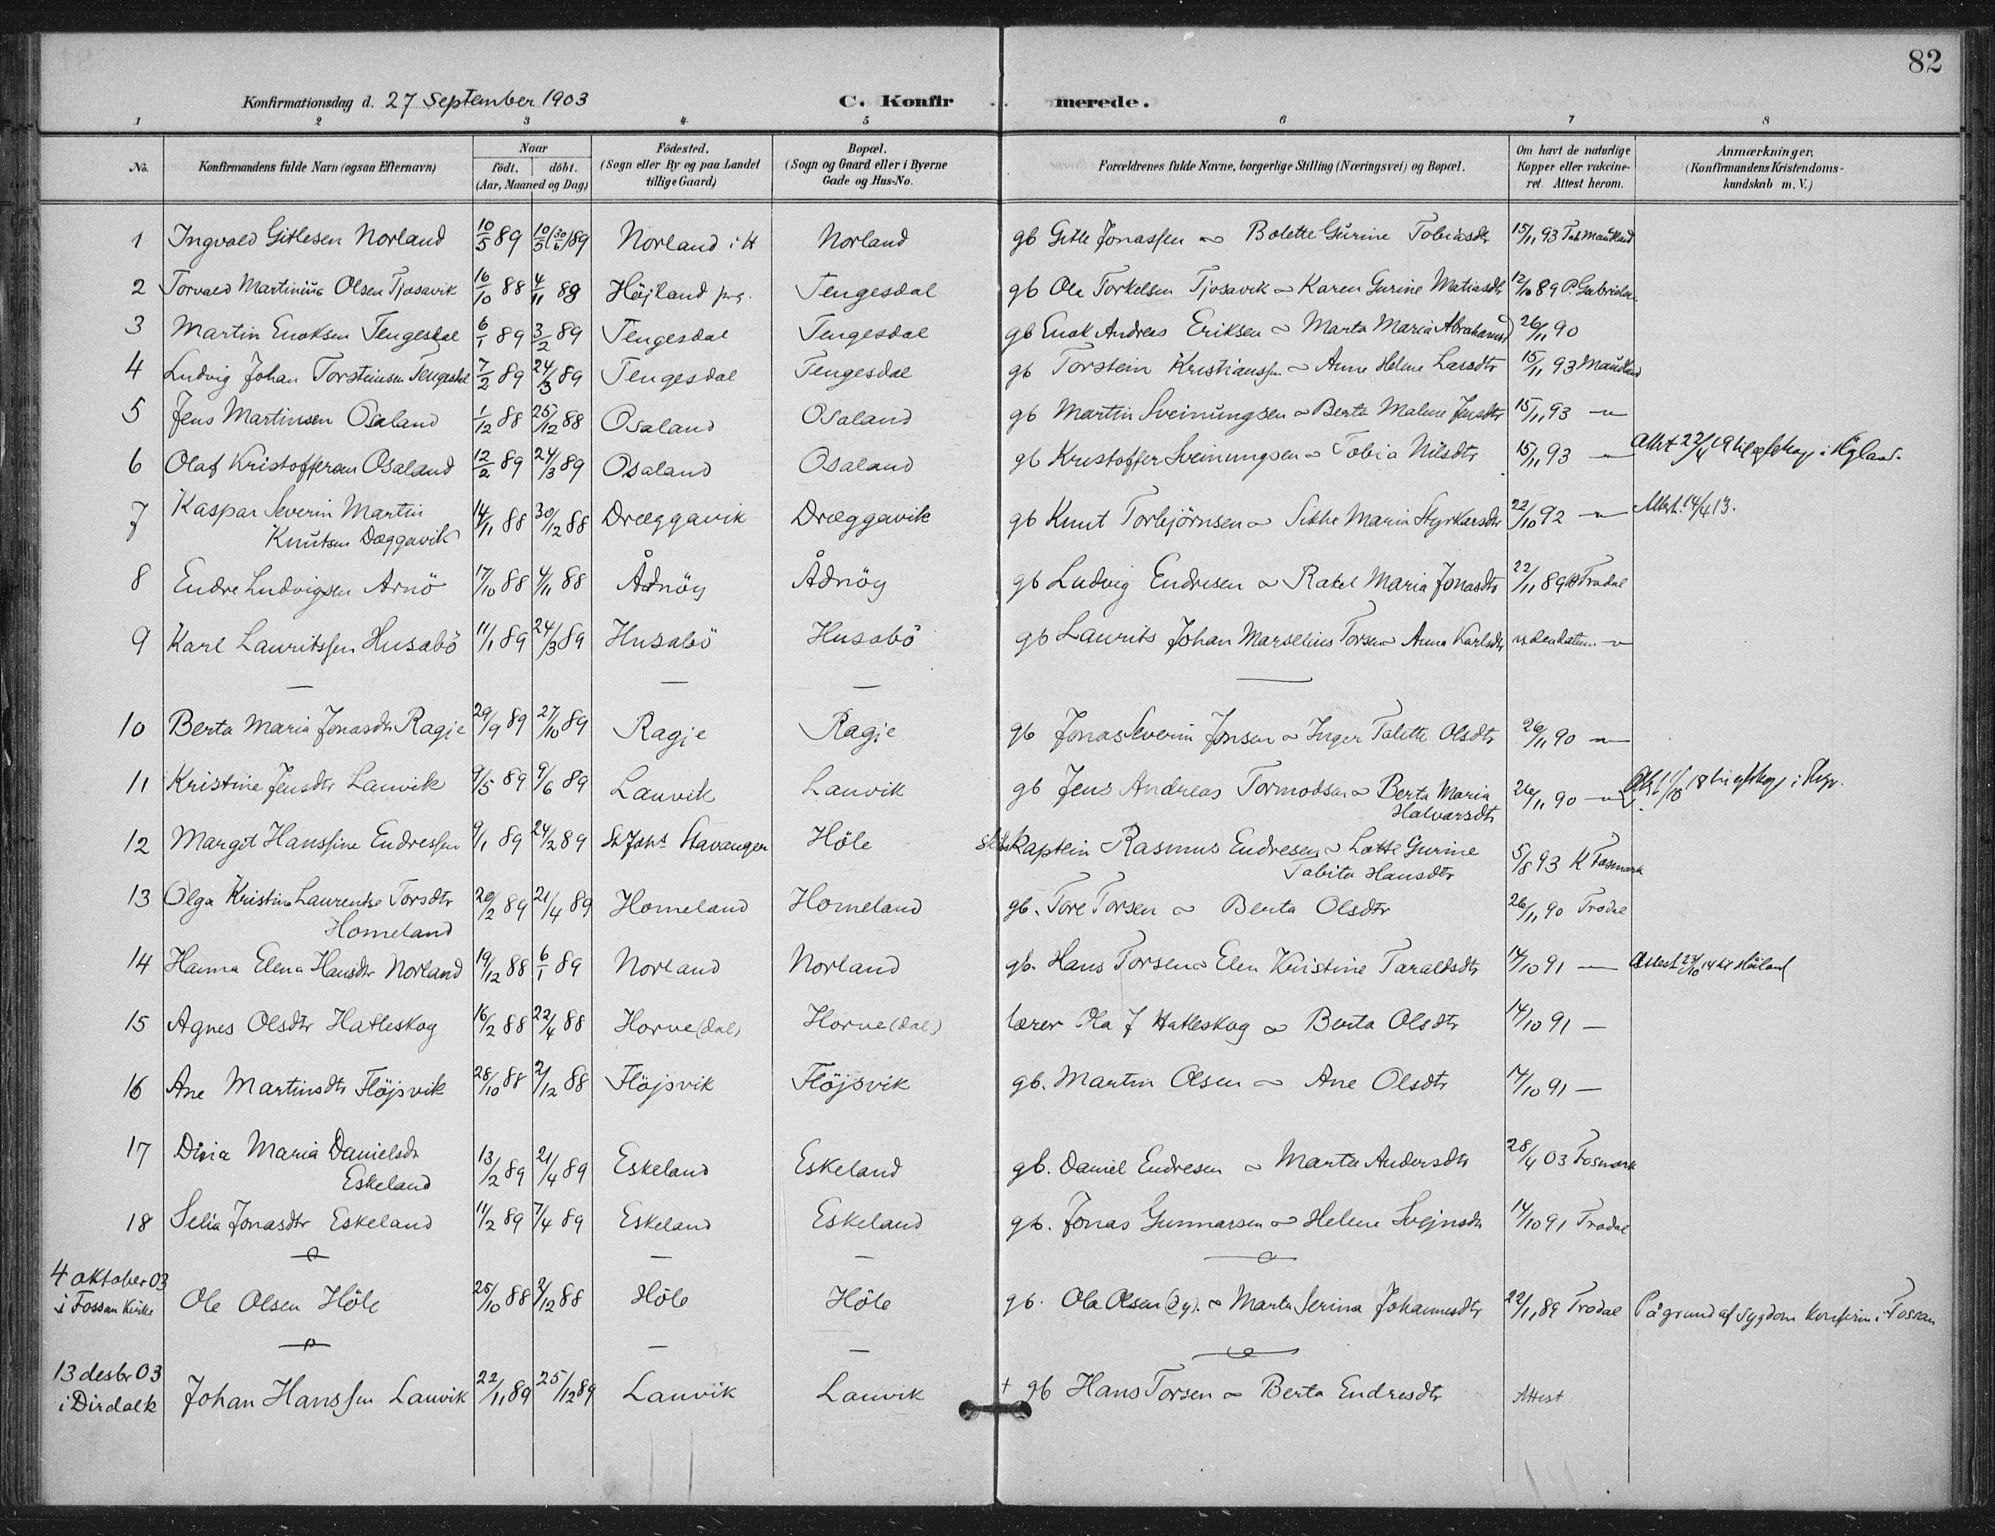 82
Konfirmationsdag d. 27 September 1903 C. Konfirmerede.
1 2 3 4 5 6 7 8
No. Konfirmandens fulde Navn (ogsaa Efternavn) Naar født. døbt. (Aar, Maaned og Dag) Fødested. (Sogn eller By og paa Landet tillige Gaard) Bopæl. (Sogn og Gaard eller i Byerne Gade og Hus-No. Forældrenes fulde Navne, borgerlige Stilling (Næringsvei) og Bopæl. Om havt de naturlige Kopper eller vakcineret Attest herom. Anmærkninger, (Konfirmandens Kristendomskundskab m. V.)
1 Ingvald Gitlesen Norland 10/5 89 10/5 (30/6) 89 Norland i H Norland gb Gitle Jonassen ~ Bolette Gurine Tobiasdtr 15/11 93 Maudland
2 Torvald Martinius Olsen Tjosavik 16/10 88 4/11 88 Højland prg. Tengesdal gb Ole Torkelsen Tjosavik ~ Karen Gurine Matiasdtr 12/10 89 P. Gabrielsen
3 Martin Enoksen Tengesdal 6/1 89 3/2 89 Tengesdal Tengesdal gb Enok Andreas Eriksen ~ Marta Maria Abrahamsd 26/11 90
4 Ludvig Johan Torsteinsen Tengesdal 7/2 89 24/3 89 Tengesdal Tengesdal gb Torstein Kristianssen ~ Anne Helene Larsdtr 15/11 93 Maudland
5 Jens Martinsen Osaland 1/12 88 25/12 88 Osaland Osaland gb Martin Sveinungsen ~ Berta Malene Jensdtr 15/11 93 —
6 Olaf Kristoffersen Osaland 12/2 89 24/3 89 Osaland Osaland gb Kristoffer Sveinungsen ~ Tobia Nilsdtr 15/11 93 — Attest 22/4 19 til ægteskap i Høgland.
7 Kaspar Severin Martin
Knutsen Dæggavik 14/11 88 30/12 88 Dræggavik Dræggavik gb Knut Torbjørnsen ~ Sidse Maria Styrkarsdtr 22/10 92 — Attest 14/4 13.
8 Endre Ludvigsen Arnö 17/10 88 4/11 88 Ådnöy Ådnöy gb Ludvig Endresen ~ Rakel Maria Jonasdtr 22/11 89 Tradal
9 Karl Lauritssen Husabö 11/1 89 24/3 89 Husabö Husabö gb Laurits Johan Marselius Torsen ~ Anna Karlsdtr uden datum —
10 Berta Maria Jonasdtr Ragje 29/9 89 27/10 89 Ragje Ragje gb Jonas Severin Jonsen ~ Inger Talette Olsdtr 26/11 90 —
11 Kristine Jensdtr Lauvik 9/5 89 9/6 89 Lauvik Lauvik gb Jens Andreas Tormodsen ~ Berta Maria
Halvarsdtr 26/11 90 —
12 Margit Hanssine Endressen 9/1 89 24/2 89 St Johs Stavanger Höle kaptein Rasmus Endresen ~ Lotte Gurine
Tabita Hansdtr 5/8 93 K Fosmark
13 Olga Kristine Laurentse Torsdtr
Homeland 20/2 89 21/4 89 Homeland Homeland gb. Tore Torsen ~ Berta Olsdtr 26/11 90 Tradal
14 Hanna Elena Hansdtr Norland 19/12 88 6/1 89 Norland Norland gb. Hans Torsen ~ Elen Kristine Taraldsdtr 14/10 91 — Attest 24/10 14 til Høiland
15 Agnes Olsdtr Hatleskog 16/2 88 22/4 88 Horve (dal) Horve (dal) lærer Ola J Hatleskog ~ Berta Olsdtr 14/10 91 —
16 Ane Martinsdtr Flöjsvik 28/10 88 2/12 88 Flöjsvik Flöjsvik gb. Martin Olsen ~ Ane Olsdtr 14/10 91 —
17 Dina Maria Danielsdtr
Eskeland 13/2 89 21/4 89 Eskeland Eskeland gb. Daniel Endresen ~ Marta Andersdtr 28/4 03 Fosmark
18 Selia Jonasdtr Eskeland 11/2 89 7/4 89 Eskeland Eskeland gb. Jonas Gunnarsen ~ Helene Svejnsdtr 14/10 91 Tradal
4 oktober 03
i Fossan kirke Ole Olsen Höle 25/10 88 2/12 88 Höle Höle gb. Ola Olsen (yg). ~ Marta Serina Johannesdtr 22/11 89 Tradal På grund af sygdom konfirm. i Fossan
13 desbr 03
i Dirdal k Johan Hanssen Lauvik 22/11 89 25/12 89 Lauvik Lauvik + gb Hans Torsen ~ Berta Endresdtr Attest